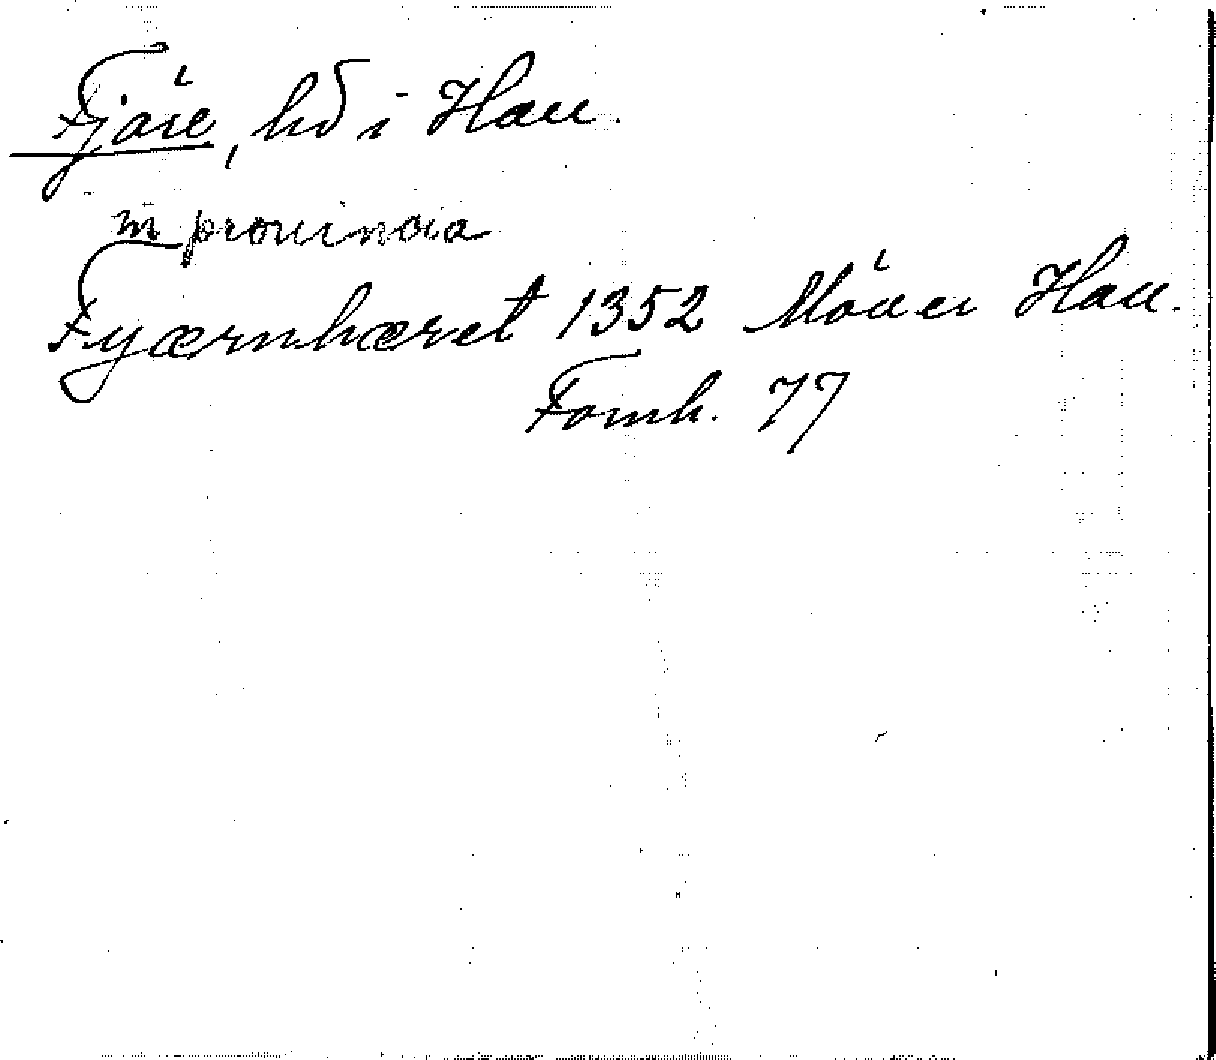 Fjäre, hd i Hall.
in prouincia
Fyærnhæret 1352 Möller Hall.
Fornh. 77